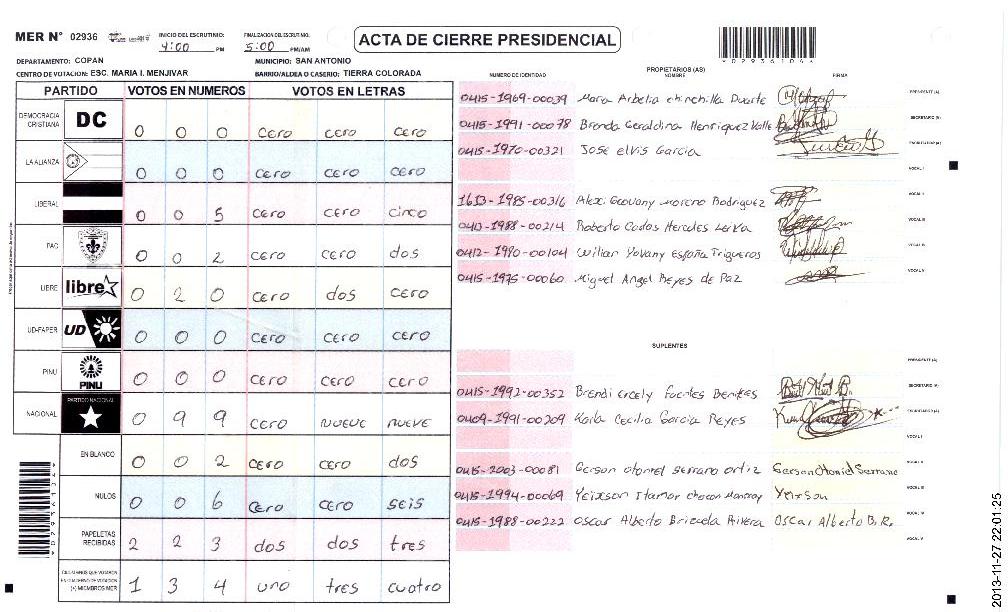 MER N° 02936
INICIO DEL ESCRUTINIO: 4:00 PM
FINALIZACION DEL ESCRUTINIO: 5:00 PM/AM
ACTA DE CIERRE PRESIDENCIAL
DEPARTAMENTO: COPAN
MUNICIPIO: SAN ANTONIO
CENTRO DE VOTACION: ESC. MARIA I. MENJIVAR
BARRIO/ALDEA O CASERIO: TIERRA COLORADA
PARTIDO VOTOS EN NUMEROS VOTOS EN LETRAS
DEMOCRACIA CRISTIANA DC 0 0 0 cero cero cero
LA ALIANZA 0 0 0 cero cero cero
LIBERAL 0 0 5 cero cero cinco
PAC 0 0 2 cero cero dos
LIBRE libre 0 2 0 cero dos cero
UD-FAPER UD 0 0 0 cero cero cero
PINU PINU 0 0 0 cero cero cero
NACIONAL PARTIDO NACIONAL 0 9 9 cero nueve nueve
EN BLANCO 0 0 2 cero cero dos
NULOS 0 0 6 cero cero seis
PAPELETAS RECIBIDAS 2 2 3 dos dos tres
CIUDADANOS QUE VOTARON EN CUADERNO DE VOTACION (+) MIEMBROS MER 1 3 4 uno tres cuatro
0293610 4
PROPIETARIOS (AS)
NUMERO DE IDENTIDAD NOMBRE FIRMA
0415-1969-00039 Mara Arbelia chinchilla Duarte PRESIDENTE (A)
0415-1991-00078 Brenda Geraldina Henriquez Valle SECRETARIO (A)
0415-1970-00321 Jose elvis Garcia ESCRUTADOR (A)
VOCAL I
1613-1985-00316 Alex Geovany Moreno Rodriguez VOCAL II
0413-1988-00214 Roberto Carlos Hercules Leiva VOCAL III
0412-1990-00104 Wilian Yovany España Trigueros VOCAL IV
0415-1975-00060 Miguel Angel Reyes de Paz VOCAL V
SUPLENTES
PRESIDENTE (A)
0415-1992-00352 Brendi Fuentes Benites SECRETARIO (A)
0409-1991-00209 Karla Cecilia Garcia Reyes ESCRUTADOR (A)
VOCAL I
0415-2003-00081 Gerson Otoniel Serrano ortiz Gerson Otoniel Serrano VOCAL II
0415-1994-00069 Yeixson Itamar chacon Yeixson VOCAL III
0415-1988-00222 Oscar Alberto Brizuela Rivera Oscar Alberto B.R. VOCAL IV
VOCAL V
0293610 4
2013-11-27 22:01:25